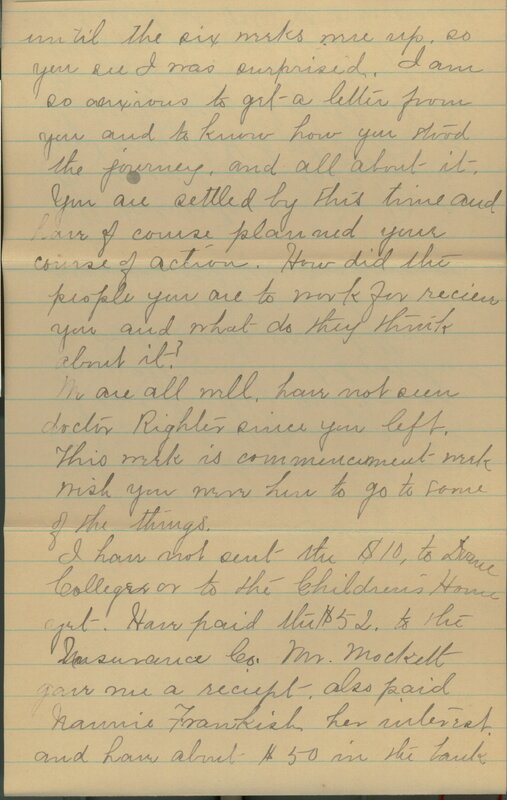 until the six weeks were up, so
you see I was surprised. I am
so anxious to get a letter from
you and to know how you stood
the journey, and all about it.
You are settled by this time and
have of course planned your
course of action. How did the
people you are to work for reciev
you and what do they think
about it?
We are all well, have not seen
doctor Righter since you left.
This week is commencement week
wish you were here to go to some
of the things.
I have not sent the $10, to Doane
College or to the Children's Home
yet. Have paid the $52. to the
Insurance Co. Mr. Mockett
gave me a reciept, also paid
Nannie Frankish her interest
and have about $50 in the bank